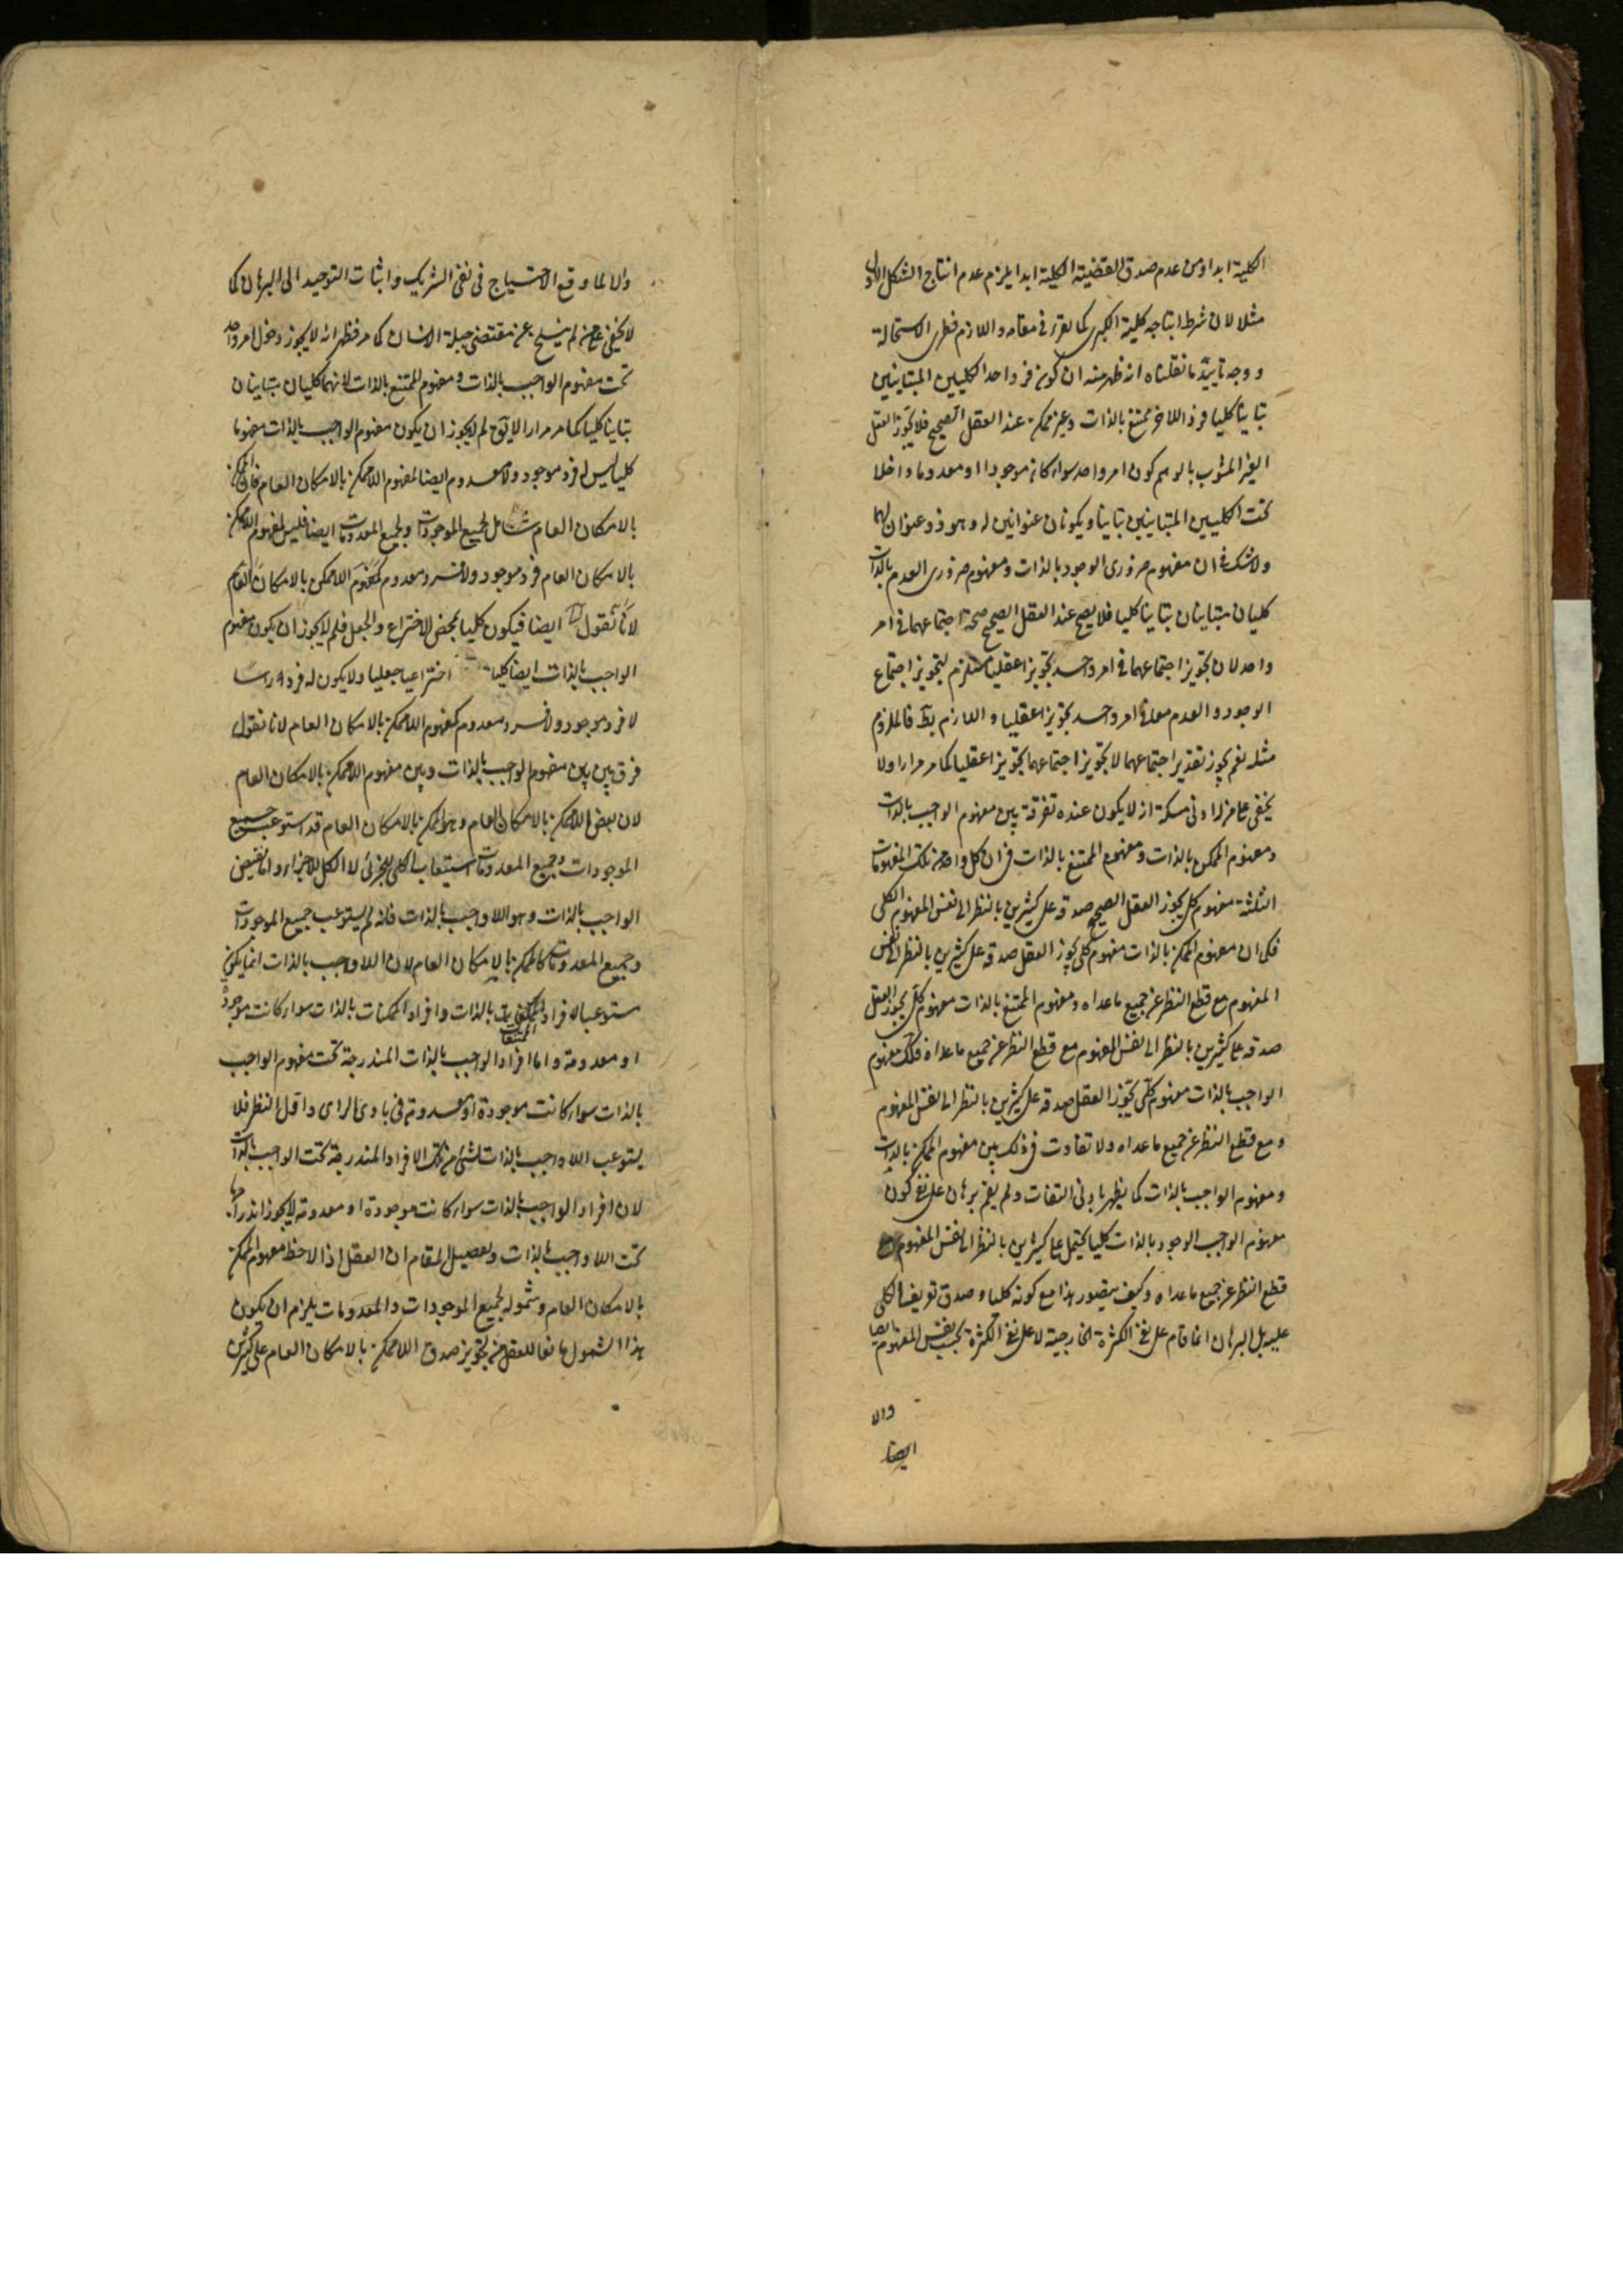 الكلية ابدا ومن عدم صدق القضية الكلية ابدا يلزم عدم انتاج الشكل الاول
مثلا لان شرط انتاجه كلية الكبرى كما تقرر فى مقامه واللازم فطرى الاستحالة
ووجه تاييد ما نقلناه انه ظهر منه ان كون فرد احد الكليين المتباينين
تباينا كليا فرد اللاخر ممتنع بالذات وغير ممكن عند العقل الصحيح فلا يجوز العقل
الغير المشوب بالوهم كون امر واحد سواء كان موجودا او معدوما داخلا
تحت الكليين المتباينين تباينا ويكونان عنوانين له وهو ذو عنوان لهما
ولا شك فى ان مفهوم ضرورى الوجود بالذات ومفهوم ضرورى العدم بالذات
كليان متباينان تباينا كليا فلا يصح عند العقل الصحيح صحة اجتماعهما فى امر
واحد لان تجويز اجتماعهما فى امر واحد تجويزا عقليا مستلزم لتجويز اجتماع
الوجود والعدم معا فى امر واحد تجويزا عقليا واللازم بط فالملزوم
مثله نعم يجوز تقدير اجتماعهما لا تجويز اجتماعهما تجويزا عقليا كما مر مرارا ولا
يخفى على من له ادنى مسكة انه لا يكون عنده تفرقة بين مفهوم الواجب بالذات
ومفهوم الممكن بالذات ومفهوم الممتنع بالذات فى ان كل واحد من تلك المفهومات
الثلثة مفهوم كلى يجوز العقل الصحيح صدقه على كثيرين بالنظر الى نفس المفهوم الكلى
فكما ان مفهوم الممكن بالذات مفهوم كلى يجوز العقل صدقه على كثيرين بالنظر الى نفس
المفهوم مع قطع النظر عن جميع ما عداه ومفهوم الممتنع بالذات مفهوم كلى يجوز العقل
صدقه على كثيرين بالنظر الى نفس المفهوم مع قطع النظر عن جميع ما عداه فكذلك مفهوم
الواجب بالذات مفهوم كلى يجوز العقل صدقه على كثيرين بالنظر الى نفس المفهوم
ومع قطع النظر عن جميع ما عداه ولا تفاوت فى ذلك بين مفهوم الممكن بالذات
ومفهوم الواجب بالذات كما يظهر بادنى التفات ولم يقم برهان على نفى كون
مفهوم الواجب الوجود بالذات كليا يحتمل على كثيرين بالنظر الى نفس المفهوم مع
قطع النظر عن جميع ما عداه وكيف يتصور هذا مع كونه كليا وصدق تعريف الكلى
عليه بل البرهان انما قام على نفى الكثرة الخارجية لا على نفى الكثرة بحسب نفس المفهوم ايضا
والا
ايضا
والا لما وقع الاحتياج فى نفى الشريك واثبات التوحيد الى البرهان كما
لا يخفى على من لم ينسلخ عن مقتضى جبلة الانسان كما مر فظهر انه لا يجوز دخول امر واحد
تحت مفهوم الواجب بالذات ومفهوم الممتنع بالذات لانهما كليان متباينان
تباينا كليا كما مر مرارا لا يقال لم لا يجوز ان يكون مفهوم الواجب بالذات مفهوما
كليا ليس له فرد موجود ولا معدوم ايضا كمفهوم اللاممكن بالامكان العام فان الممكن
بالامكان العام شامل لجميع الموجودات ولجميع المعدومات ايضا فليس لمفهوم اللاممكن
بالامكان العام فرد موجود ولا فرد معدوم كمفهوم اللاممكن بالامكان العام
لانا نقول ايضا فيكون كليا بمحض الاختراع والجعل فلم لا يجوز ان يكون مفهوم
الواجب بالذات ايضا كليا اختراعيا جعليا ولا يكون له فرد راسا
لا فرد موجود ولا فرد معدوم كمفهوم اللاممكن بالامكان العام لانا نقول
فرق بين بين مفهوم الواجب بالذات وبين مفهوم اللاممكن بالامكان العام
لان نقيض اللاممكن بالامكان العام وهو الممكن بالامكان العام قد استوعب جميع
الموجودات وجميع المعدومات استيعاب الكلى للجزئى لا الكل للاجزاء واما نقيض
الواجب بالذات وهو اللاواجب بالذات فانه لم يستوعب جميع الموجودات
وجميع المعدومات كالممكن بالامكان العام لان اللاواجب بالذات انما يكون
مستوعبا لافراد الممتنعات بالذات وافراد الممكنات بالذات سواء كانت موجودة
او معدومة واما افراد الواجب بالذات المندرجة تحت مفهوم الواجب
بالذات سواء كانت موجودة او معدومة فى بادى الراى واقل النظر فلا
يستوعب اللاواجب بالذات لشئ من تلك الافراد المندرجة تحت الواجب بالذات
لان افراد الواجب بالذات سواء كانت موجودة او معدومة لا يجوز اندراجها
تحت اللاواجب بالذات وتفصيل المقام ان العقل اذا لاحظ مفهوم الممكن
بالامكان العام وشموله لجميع الموجودات والمعدومات يلزم ان يكون
هذا الشمول مانعا للعقل من تجويز صدق اللاممكن بالامكان العام على كثيرين